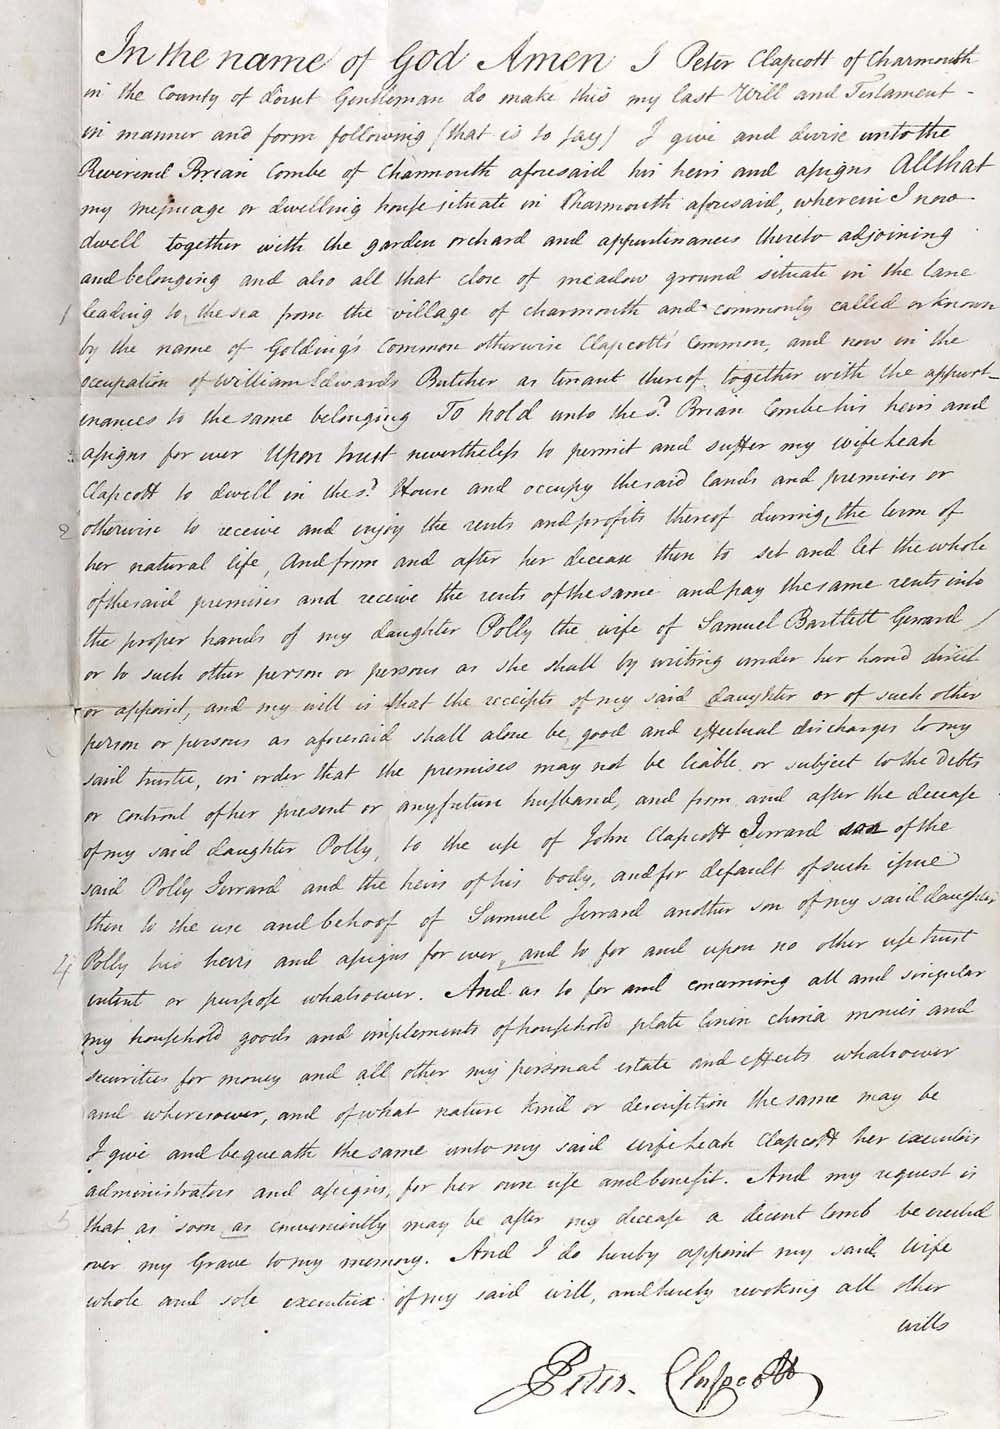 In the name of God Amen I Peter Clapcott of Charmouth
in the County of Dorset Gentleman do make this my last Will and Testament -
in manner and form following (that is to say) I give and devise unto the
Reverend Brian Combe of Charmouth aforesaid his heirs and assigns All that
my messuage or dwelling house situate in Charmouth aforesaid, wherein I now
dwell together with the garden orchard and appurtenances thereto adjoining
and belonging and also all that close of meadow ground situate in the lane
1 leading to the sea from the village of Charmouth and commonly called or known
by the name of Golding's Common otherwise Clapcott's Common, and now in the
occupation of William Edwards Butcher as tenant thereof together with the appurt-
inances to the same belonging To hold unto the sd. Brian Combe his heirs and
assigns for ever Upon trust nevertheless to permit and suffer my wife Leah
Clapcott to dwell in the sd. House and occupy the said lands and premises or
2 otherwise to receive and enjoy the rents and profits thereof during, the term of
her natural life, And from and after her decease then to set and let the whole
of the said premises and receive the rents of the same and pay the same rents into
the proper hands of my daughter Polly the wife of Samuel Bartlett Gerrard /
or to such other person or persons as she shall by writing under her hand direct
or appoint, and my will is that the receipts of my said daughter or of such other
person or persons as aforesaid shall alone be good and effectual discharges to my
said trustee, in order that the premises may not be liable or subject to the Debts
or controul of her present or any future husband, and from and after the decease
of my said daughter Polly, to the use of John Clapcott Jerrard son of the
said Polly Jerrard and the heirs of his body, and for default of such issue
then to the use and behoof of Samuel Jerrard another son of my said daughter
4 Polly his heirs and assigns for ever, and to for and upon no other use trust
intent or purpose whatsoever. And as to for and concerning all and singular
my household goods and implements of household plate linin china monies and
securities for money and all other my personal estate and effects whatsoever
and wheresoever, and of what nature kind or description the same may be
I give and bequeath the same unto my said wife Leah Clapcott her executors
administrators and assigns, for her own use and benefit. And my request is
5 that as soon as conveniently may be after my decease a decent tomb be erected
over my Grave to my memory. And I do hereby appoint my said Wife
whole and sole executrix of my said will, and hereby revoking all other
wills
Peter Clapcott